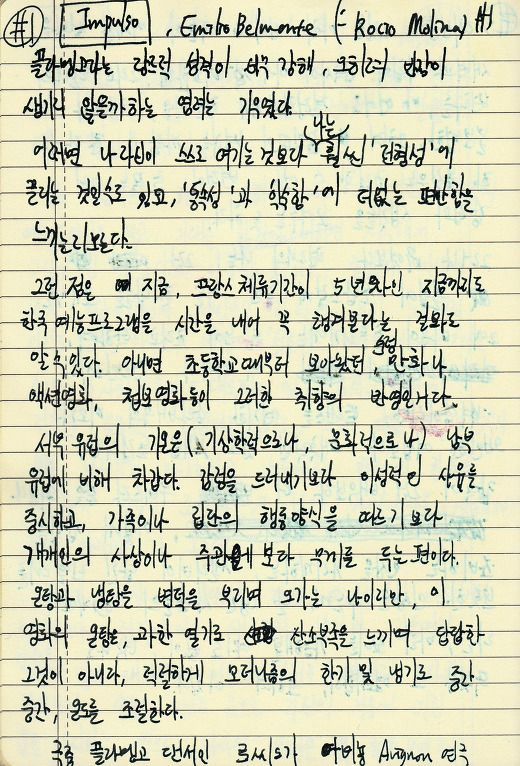 #1) Impulso, Emilio Belmonte (- Rocio Molina)
플라멩고라는 민족적 성격이 너무 강해, 오히려 반감이
생기지 않을까하는 염려는 기우였다.
어쩌면 나 자신이 스스로 여기는 것보다 나는 '훨씬' '전형성'에
끌리는 것일수도 있고, '통속성'과 익숙함'에 더없는 편안함을
느끼는지 모른다.
그런 점은 지금, 프랑스 체류기간이 5년차인 지금까지도
한국 예능프로그램을 시간을 내어 꼭 챙겨본다는 걸로
알 수 있다. 아니면 초등학교때부터 모아왔던, 순정 만화나
액션영화, 첩보영화등이 그러한 취향의 반영인거다.
서북 유럽의 기온은 (기상학적으로나, 문화적으로나) 남부
유럽에 비해 차갑다. 감정을 드러내기보다 이성적인 사유를
중시하고, 가족이나 집단의 행동양식을 따르기 보다
개개인의 사상이나 주관에 보다 무게를 두는 편이다.
온탕과 냉탕을 변덕을 부리며 오가는 나이지만, 이
영화의 온탕은, 과한 열기로 산소부족을 느끼며 답답한
그것이 아니다, 적절하게 모더니즘의 한기 및 냉기로 중간
중간, 온도를 조절한다.
플라멩고 댄서인 로씨오가 아비뇽 Avignon 연극